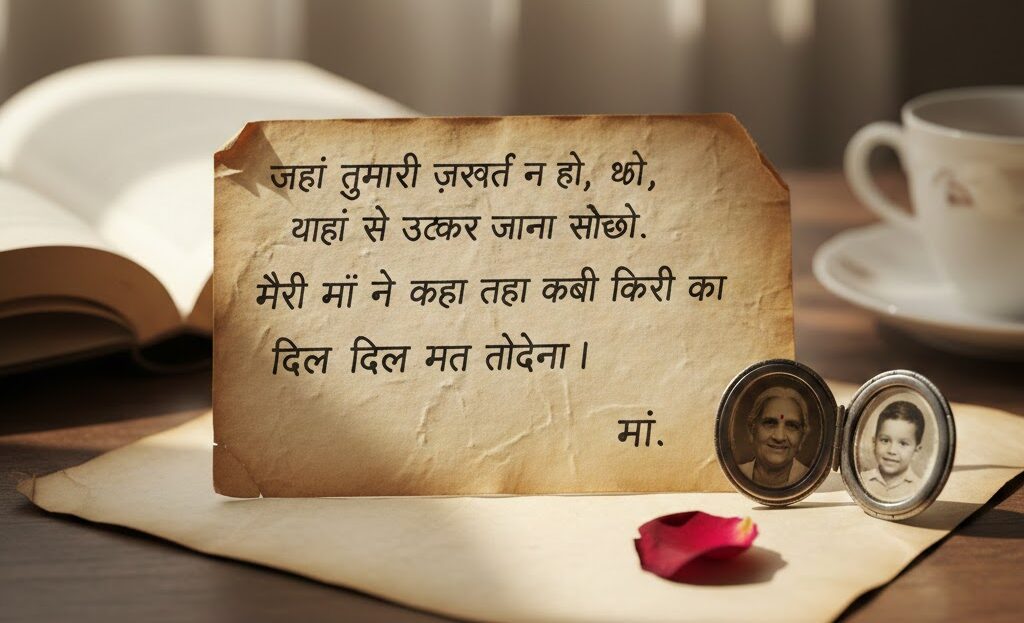 जहां तुमारी ज़रुर्त न हो, थो,
याहां से उटकर जाना सोछो.
मैरी मॉं ने कहा तहा कबी किरी का
दिल दिल मत तोदेना।
मां.